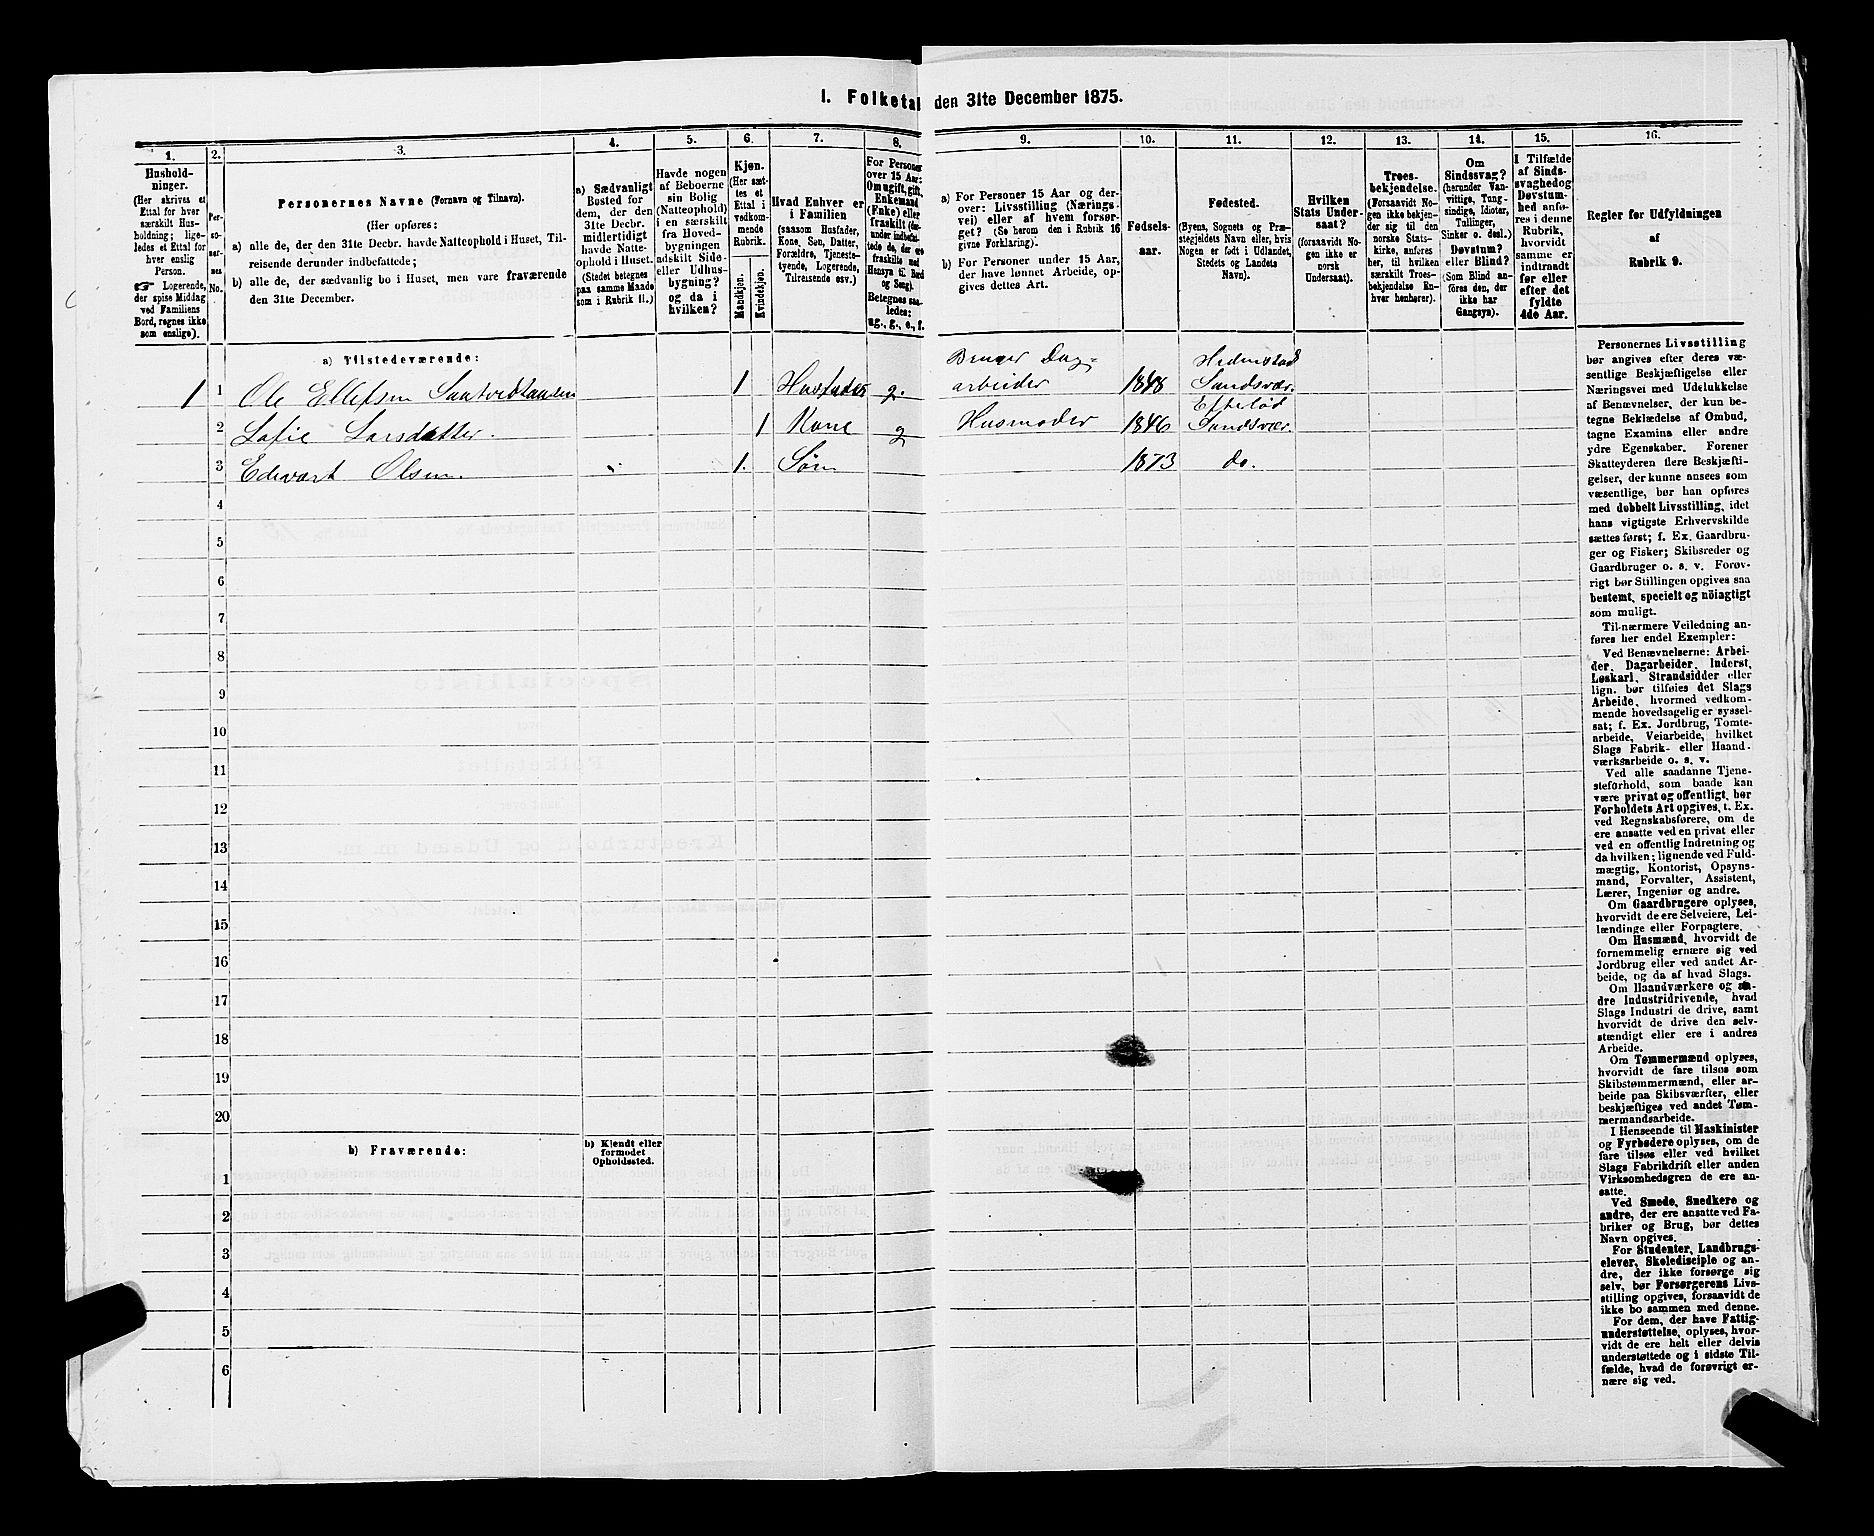 I. Folketal den 31te December 1875.
1.
Hushold-
ninger.
(Her skrives et
Ettal for hver
særskilt Hus-
holdning; lige-
ledes et Ettal for
hver enslig
Person.
☞ Logerende,
der spise Middag
ved Familiens
Bord, regnes ikke
som enslige).
2.
Per-
so-
ner-
nes
No.
3.
Personernes Navne (Fornavn og Tilnavn).
(Her opføres:
a) alle de, der den 31te Decbr. havde Natteophold i Huset, Til-
reisende derunder indbefattede;
b) alle de, der sædvanlig bo i Huset, men vare fraværende
den 31te December.
4.
a) Sædvanligt
Bosted for
dem, der den
31te Decbr.
midlertidigt
havde Natte-
ophold i Huset.
(Stedet betegnes
paa samme Maade
som i Rubrik 11.)
5.
Havde nogen
af Beboerne
sin Bolig
(Natteophold)
i en særskilt
fra Hoved-
bygningen
adskilt Side-
eller Udhus-
bygning?
og da i
hvilken?
6.
Kjøn.
(Her sæt-
tes et
Ettal i
vedkom-
mende
Rubrik.
Mandkjøn.
Kvindekjøn.
7.
Hvad Enhver er
i Familien
(saasom Husfader,
Kone, Søn, Datter,
Forældre, Tjeneste-
tyende, Logerende,
Tilreisende osv.)
8.
For Personer
over 15 Aar:
Om ugift, gift,
Enkemand
(Enke) eller
fraskilt (der-
under indbefat-
tede de, der ere
fraskilte med
Hensyn til Bord
og Seng).
Betegnes saa-
ledes:
ug., g., e., f.
9.
a) For Personer 15 Aar og der-
over: Livsstilling (Nærings-
vei) eller af hvem forsør-
get? (Se herom den i Rubrik 16
givne Forklaring).
b) For Personer under 15 Aar,
der have lønnet Arbeide, op-
gives dettes Art.
10.
Fødsels-
aar.
11.
Fødested.
(Byens, Sognets og Præ-
stegjeldets Navn eller, hvis
Nogen er født i Udlandet,
Stedets og Landets
Navn).
12.
Hvilken
Stats Under-
saat?
(forsaavidt No-
gen ikke er
norsk
Undersaat).
13.
Troes-
bekjendelse.
(Forsaavidt No-
gen ikke bekjen-
der sig til den
norske Stats-
kirke, anføres
her, til hvilken
særskilt Troes-
bekjendelse En-
hver henhører).
14.
Om
Sindssvag?
(herunder Van-
vittige, Tung-
sindige, Idioter,
Tullinger,
Sinker o. desl.)
Døvstum?
eller Blind?
(Som Blind an-
føres den, der
ikke har
Gangsyn).
15.
I Tilfælde
af Sinds-
svaghed og
Døvstum-
hed anfø-
res i denne
Rubrik,
hvorvidt
samme er
indtraadt
før eller
efter det
fyldte
4de Aar.
16.
Regler for Udfyldningen
af
Rubrik 9.
a) Tilstedeværende:
1 1 Ole Ellefsen 1 Husfader g. Bruger Dag-
arbeider 1848 Hedenstad
Sandsvær.
2 Sofie Larsdatter. 1 Kone g Husmoder 1846 Eftelød
Sandsvær.
3 Edevart Olsen. 1. Søn 1873 do.
4
5
6
7
8
9
10
11
12
13
14
15
16
17
18
19
20
b) Fraværende:
b) Kjendt eller
formodet
Opholdssted.
1
2
3
4
5
6
Personernes Livsstilling
bør angives efter deres væ-
sentlige Beskjæftigelse eller
Næringsvei med Udelukkelse
af Benævnelser, der kun be-
tegne Beklædelse af Ombud,
tagne Examina eller andre
ydre Egenskaber. Forener
Skatteyderen flere Beskjæfti-
gelser, der kunne ansees som
væsentlige, bør han opføres
med dobbelt Livsstilling, idet
hans vigtigste Erhvervskilde
sættes først; f. Ex. Gaardbru-
ger og Fisker; Skibsreder og
Gaardbruger o. s. v. Forøv-
rigt bør Stillingen opgives saa
bestemt, specielt og nöiagtigt
som muligt.
Til nærmere Veiledning an-
føres her endel Exempler:
Ved Benævnelserne: Arbei-
der, Dagarbeider, Inderst,
Løskarl, Strandsidder eller
lign. bør tilføies det Slags
Arbeide, hvormed vedkom-
mende hovedsagelig er syssel-
sat; f. Ex. Jordbrug, Tomte-
arbeide, Veiarbeide, hvilket
Slags Fabrik- eller Haand-
værksarbeide o. s. v.
Ved alle saadanne Tjene-
steforhold, som baade kan
være privat og offentligt, bør
Forholdets Art opgives, t. Ex.
ved Regnskabsførere, om de
ere ansatte ved en privat eller
ved en offentlig Indretning og
da hvilken; lignende ved Fuld-
mægtig, Kontorist, Opsyns-
mand, Forvalter, Assistent,
Lærer, Ingeniør og andre.
Om Gaardbrugere oplyses,
hvorvidt de ere Selveiere, Lei-
lændinge eller Forpagtere.
Om Husmænd, hvorvidt de
fornemmelig ernære sig ved
Jordbrug eller ved andet Ar-
beide, og da af hvad Slags.
Om Haandværkere og an-
dre Industridrivende, hvad
Slags Industri de drive, samt
hvorvidt de drive den selv-
stændigt eller ere i andres
Arbeide.
Om Tømmermænd oplyses,
hvorvidt de fare tilsøs som
Skibstømmermænd, eller ar-
beide paa Skibsværfter, eller
beskjæftiges ved andet Tøm-
mermandsarbeide.
I Henseende til Maskinister
og Fyrbødere oplyses, om de
fare tilsøs eller ved hvilket
Slags Fabrikdrift eller anden
Virksomhedsgren de ere an-
satte.
Ved Smede, Snedkere og
andre, der ere ansatte ved Fa-
briker og Brug, bør dettes
Navn opgives.
For Studenter, Landbrugs-
elever, Skoledisciple og an-
dre, der ikke forsørge sig
selv, bør Forsørgerens Livs-
stilling opgives, forsaavidt de
ikke bo sammen med denne.
For dem, der have Fattig-
understøttelse, oplyses, hvor-
vidt de ere helt eller delvis
understøttede og i sidste Til-
fælde, hvad de forøvrigt er-
nære sig ved.